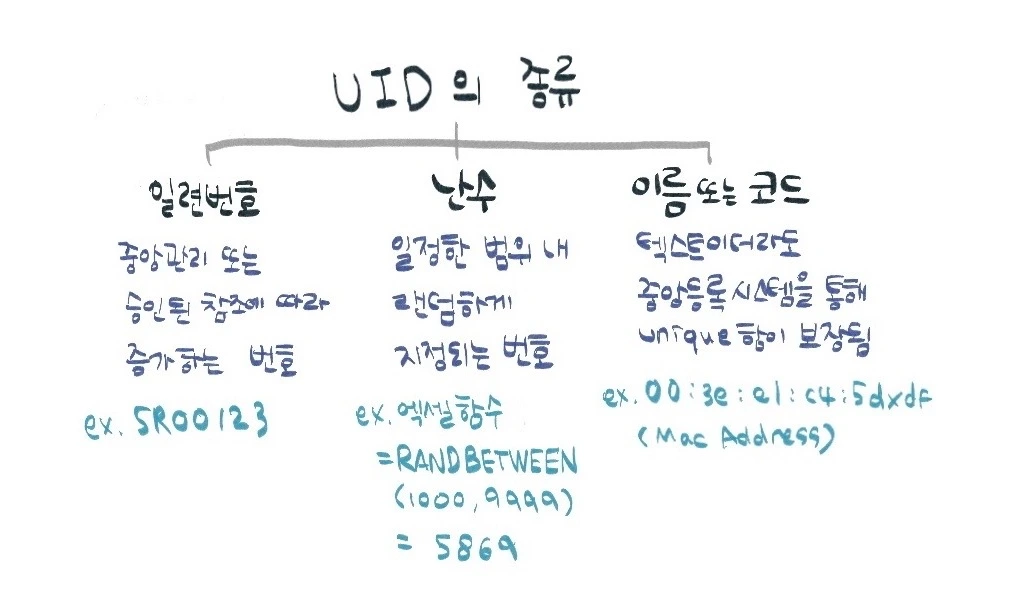 UID의 종류
일련번호
중앙관리 또는
승인된 참조에 따라
증가하는 번호
ex. SR00123
난수
일정한 범위 내
랜덤하게
지정되는 번호
ex. 엑셀함수
=RANDBETWEEN
(1000,9999)
= 5869
이름 또는 코드
텍스트이더라도
중앙등록시스템을 통해
unique함이 보장됨
ex. 00:3e:e1:c4:5dxdf
(Mac Address)